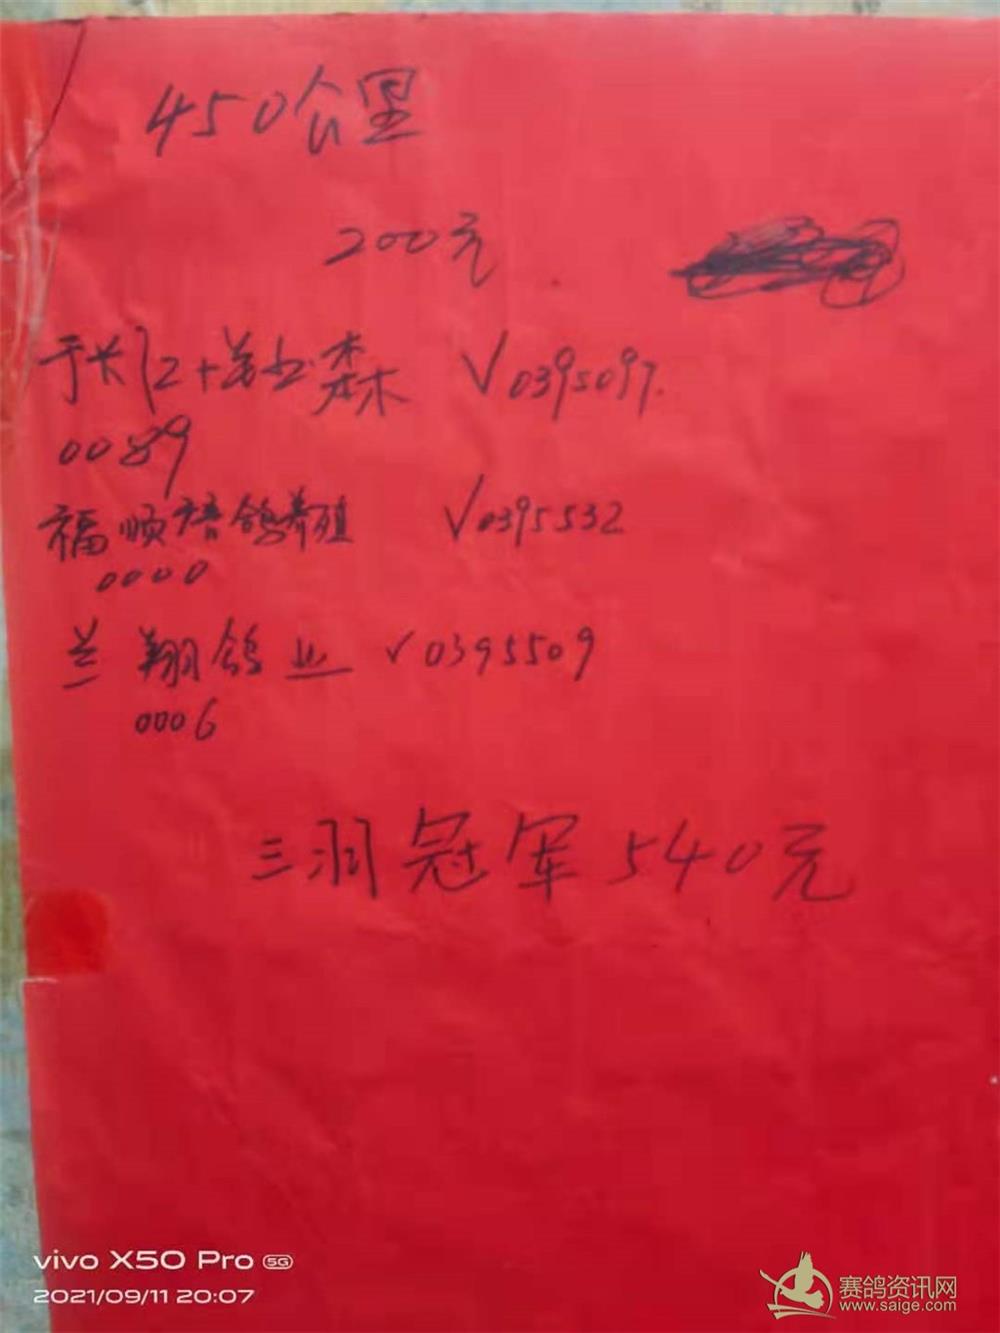 450公里
200元
于长江+姜业森 √0395097.
0089
福顺信鸽养殖 √0395532
0000
兰翔鸽业 √0395509
0006
三羽冠军540元
vivo X50 Pro 5G
2021/09/11 20:07
赛鸽资讯网
www.saige.com